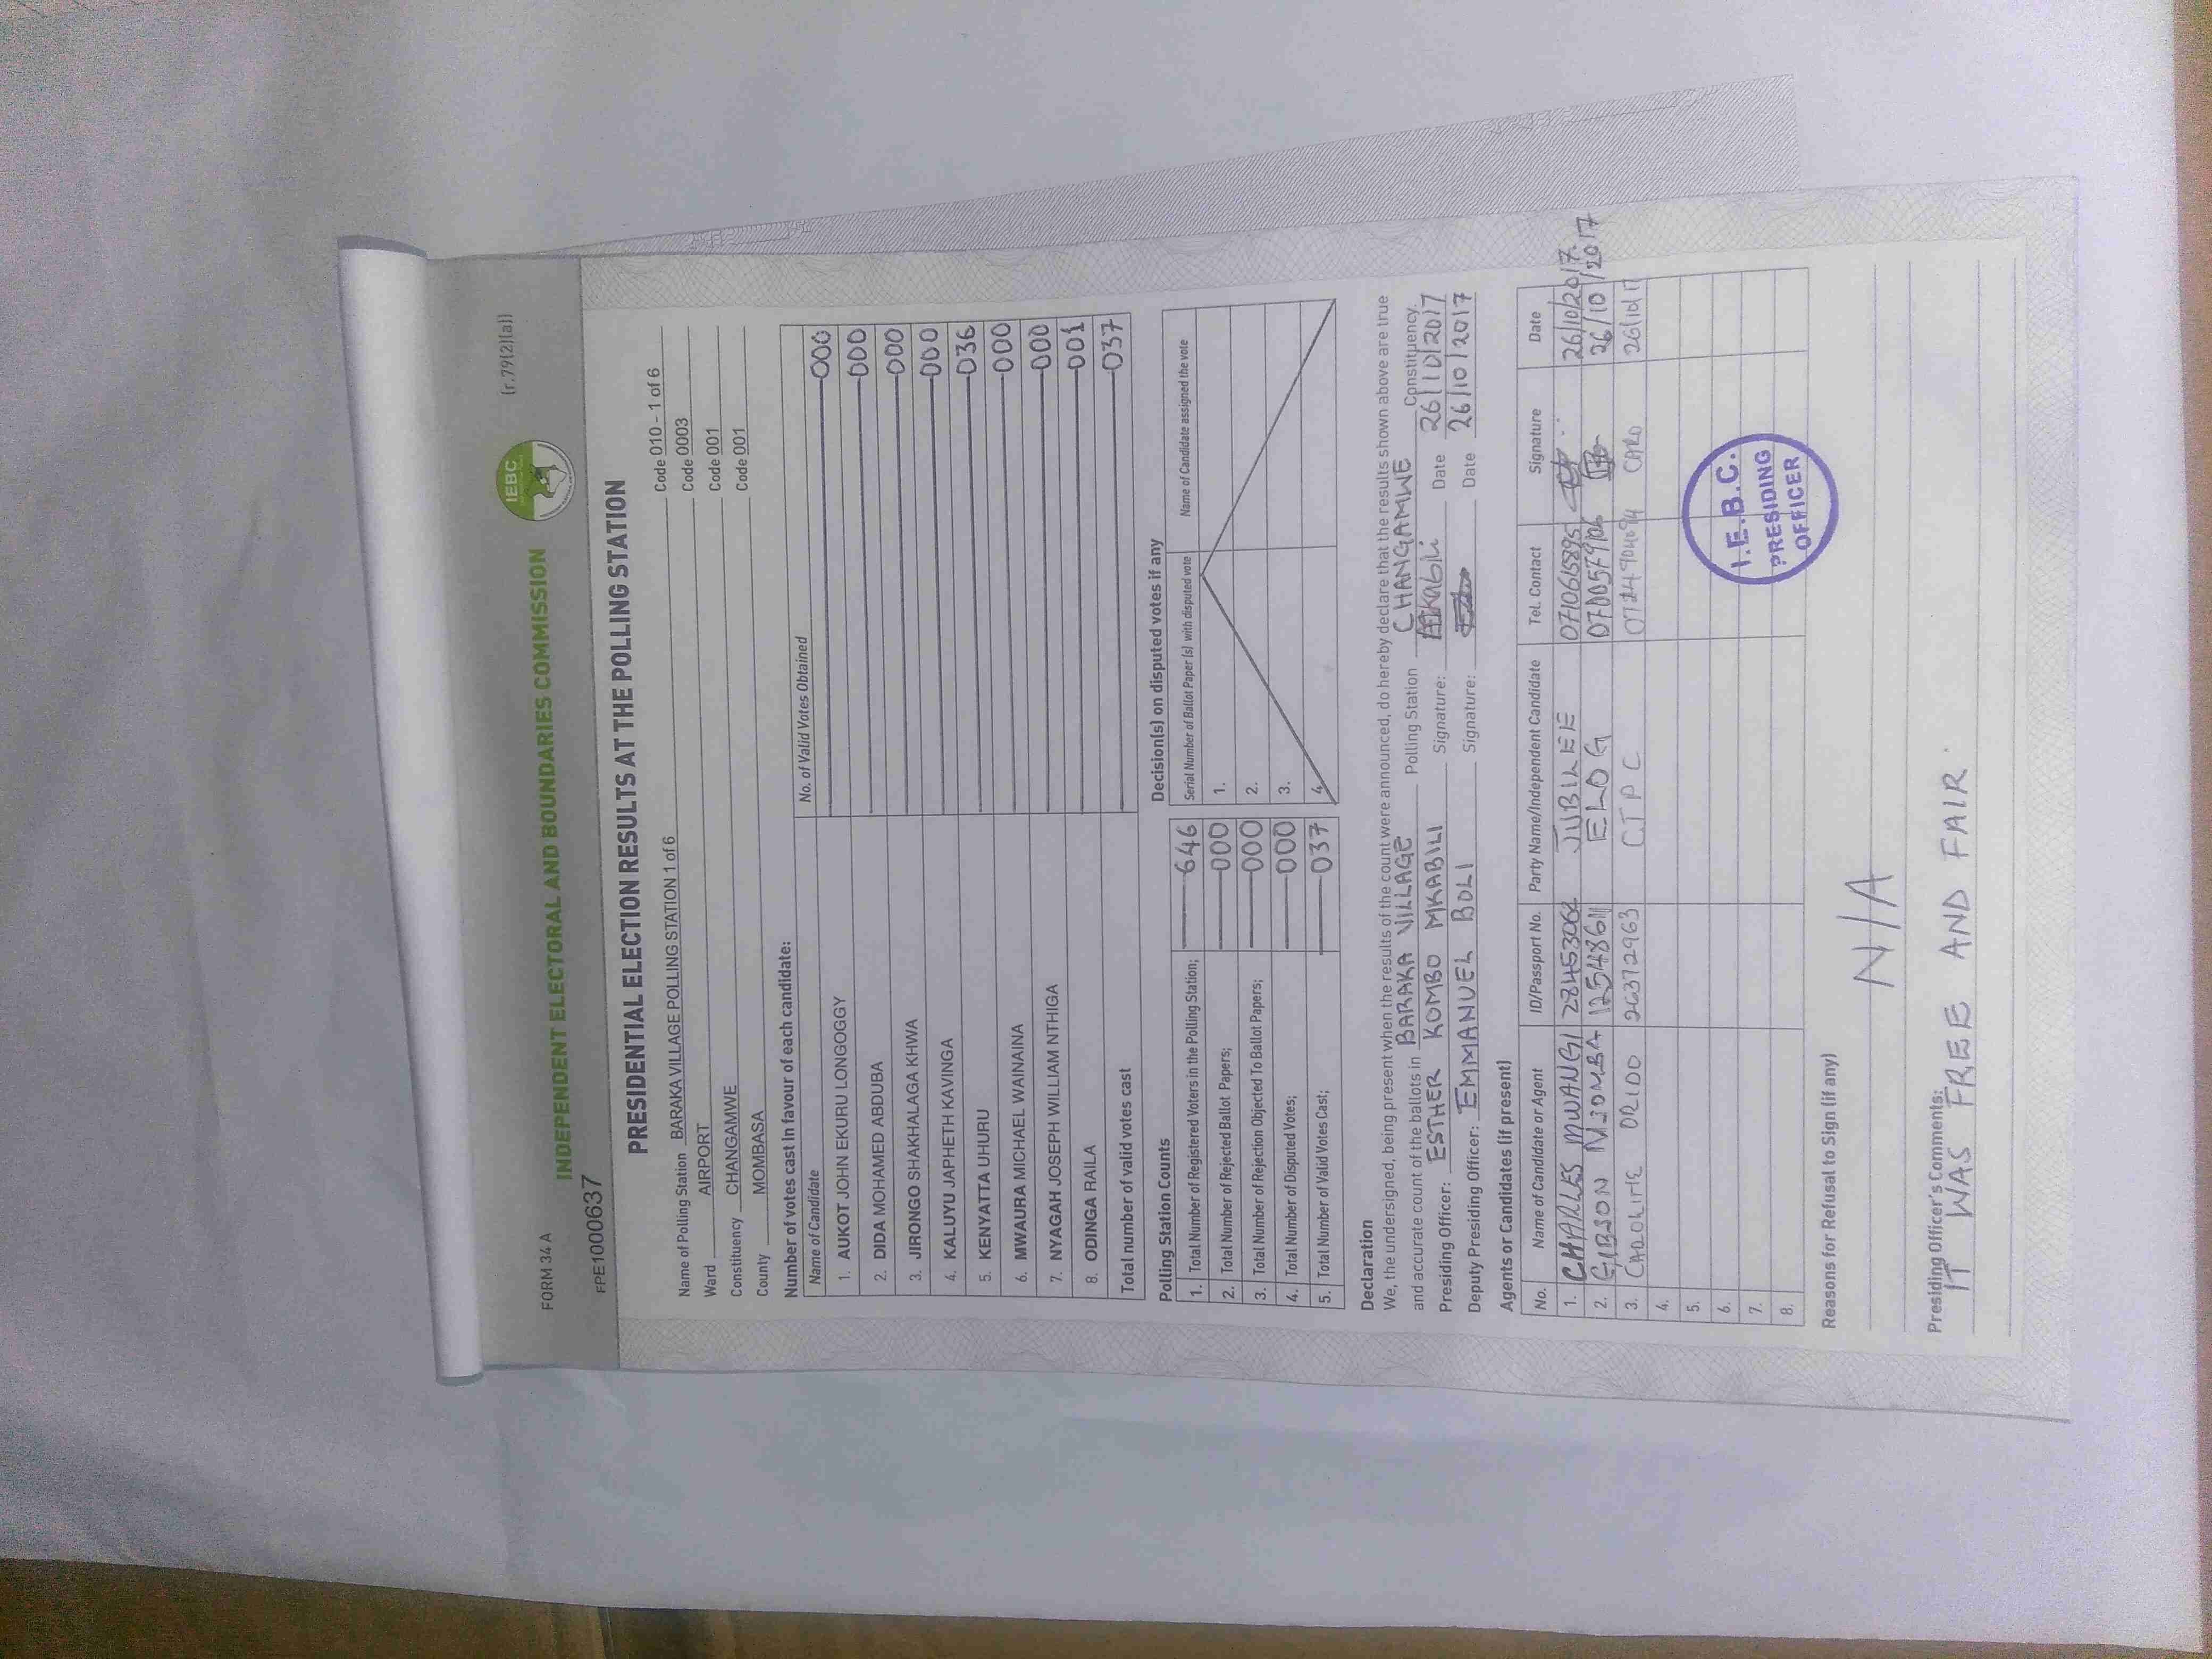 FORM 34 A
(r.79(2)(a))
IEBC
INDEPENDENT ELECTORAL AND BOUNDARIES COMMISSION
FPE1000637
PRESIDENTIAL ELECTION RESULTS AT THE POLLING STATION
Name of Polling Station BARAKA VILLAGE POLLING STATION 1 of 6 Code 010 - 1 of 6
Ward AIRPORT Code 0003
Constituency CHANGAMWE Code 001
County MOMBASA Code 001
Number of votes cast in favour of each candidate:
Name of Candidate No. of Valid Votes Obtained
1. AUKOT JOHN EKURU LONGOGGY 000
2. DIDA MOHAMED ABDUBA 000
3. JIRONGO SHAKHALAGA KHWA 000
4. KALUYU JAPHETH KAVINGA 000
5. KENYATTA UHURU 036
6. MWAURA MICHAEL WAINAINA 000
7. NYAGAH JOSEPH WILLIAM NTHIGA 000
8. ODINGA RAILA 001
Total number of valid votes cast 037
Polling Station Counts
1. Total Number of Registered Voters in the Polling Station; 646
2. Total Number of Rejected Ballot Papers; 000
3. Total Number of Rejection Objected To Ballot Papers; 000
4. Total Number of Disputed Votes; 000
5. Total Number of Valid Votes Cast; 037
Decision(s) on disputed votes if any
Serial Number of Ballot Paper (s) with disputed vote Name of Candidate assigned the vote
1.
2.
3.
4.
Declaration
We, the undersigned, being present when the results of the count were announced, do hereby declare that the results shown above are true
and accurate count of the ballots in BARAKA VILLAGE Polling Station CHANGAMWE Constituency.
Presiding Officer: ESTHER KOMBO MKABILI Signature: Date 26/10/2017
Deputy Presiding Officer: EMMANUEL BOLI Signature: Date 26/10/2017
Agents or Candidates (if present)
No. Name of Candidate or Agent ID/Passport No. Party Name/Independent Candidate Tel. Contact Signature Date
1. CHARLES MWANGI 28453062 JUBILEE 26/10/2017.
2. GIBSON 12548611 ELOG 26/10/2017
3. ORIDO 26372963 CTPC 0724904094 CARO 26/10/17
4.
5.
6.
7.
8.
I.E.B.C.
PRESIDING
OFFICER
Reasons for Refusal to Sign (if any)
N/A
Presiding Officer's Comments:
IT WAS FREE AND FAIR.